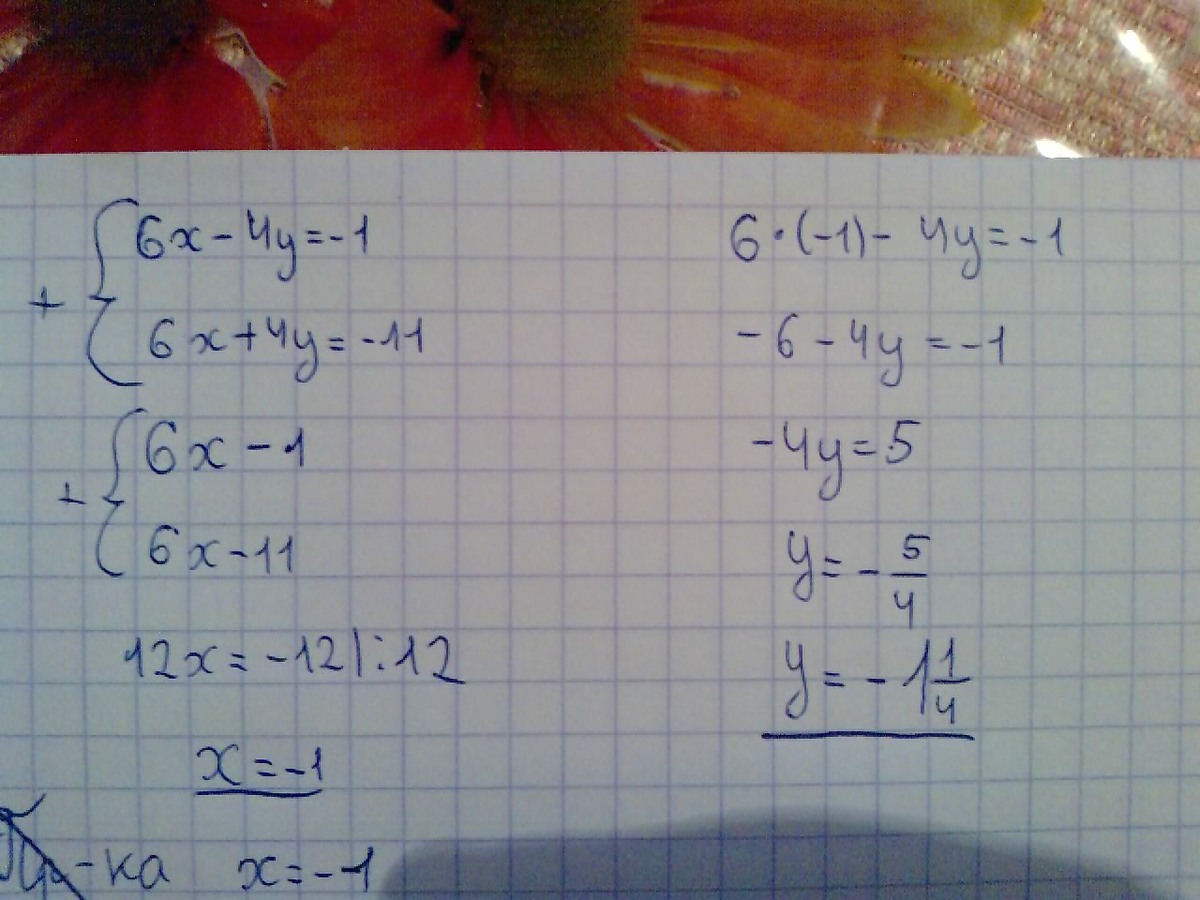 6x-4y=-1
+
6x+4y=-11
6x-1
+
6x-11
12x=-12|:12
x=-1
-ка x=-1
6·(-1)-4y=-1
-6-4y=-1
-4y=5
y=-5/4
y=-1 1/4